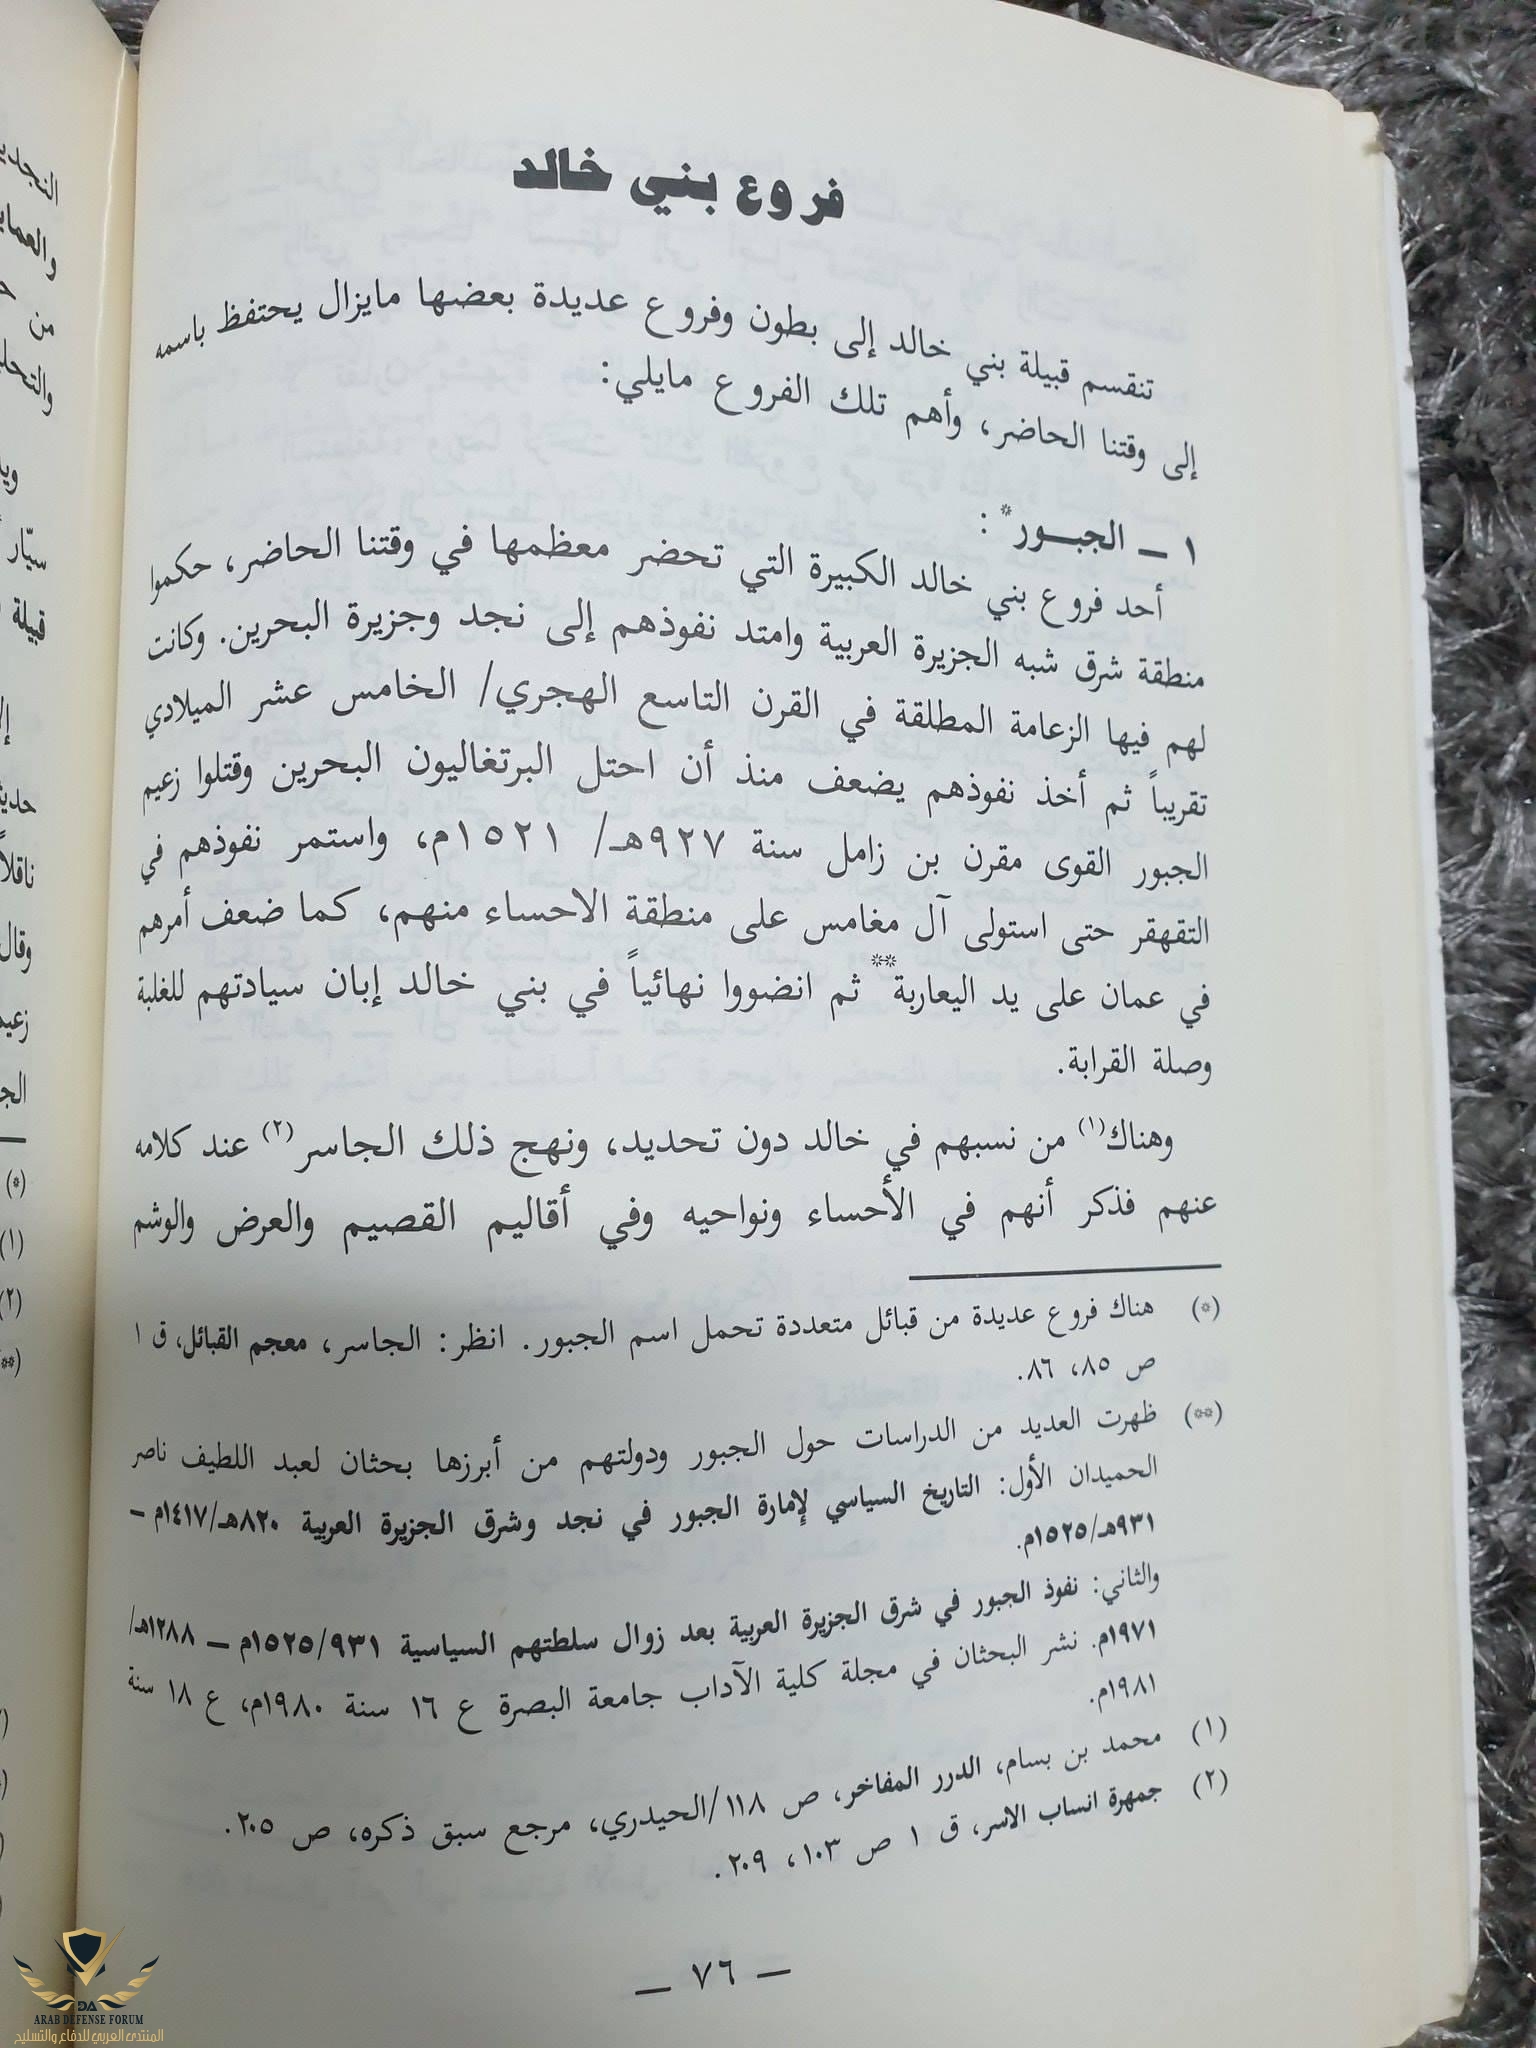 فروع بني خالد
تنقسم قبيلة بني خالد إلى بطون وفروع عديدة بعضها مايزال يحتفظ باسمه
إلى وقتنا الحاضر، وأهم تلك الفروع مايلي:
١ ــ الجبــور* :
أحد فروع بني خالد الكبيرة التي تحضر معظمها في وقتنا الحاضر، حكموا
منطقة شرق شبه الجزيرة العربية وامتد نفوذهم إلى نجد وجزيرة البحرين. وكانت
لهم فيها الزعامة المطلقة في القرن التاسع الهجري/ الخامس عشر الميلادي
تقريباً ثم أخذ نفوذهم يضعف منذ أن احتل البرتغاليون البحرين وقتلوا زعيم
الجبور القوى مقرن بن زامل سنة ٩٢٧هـ/ ١٥٢١م، واستمر نفوذهم في
التقهقر حتى استولى آل مغامس على منطقة الاحساء منهم، كما ضعف أمرهم
في عمان على يد اليعاربة** ثم انضووا نهائياً في بني خالد إبان سيادتهم للغلبة
وصلة القرابة.
وهناك(١) من نسبهم في خالد دون تحديد، ونهج ذلك الجاسر(٢) عند كلامه
عنهم فذكر أنهم في الأحساء ونواحيه وفي أقاليم القصيم والعرض والوشم
(*) هناك فروع عديدة من قبائل متعددة تحمل اسم الجبور. انظر: الجاسر، معجم القبائل، ق ١
ص ٨٥، ٨٦.
(**) ظهرت العديد من الدراسات حول الجبور ودولتهم من أبرزها بحثان لعبد اللطيف ناصر
الحميدان الأول: التاريخ السياسي لإمارة الجبور في نجد وشرق الجزيرة العربية ٨٢٠هـ/١٤١٧م –
٩٣١هـ/١٥٢٥م.
والثاني: نفوذ الجبور في شرق الجزيرة العربية بعد زوال سلطتهم السياسية ١٥٢٥/٩٣١م ــ ١٢٨٨هـ/
١٩٧١م. نشر البحثان في مجلة كلية الآداب جامعة البصرة ع ١٦ سنة ١٩٨٠م، ع ١٨ سنة
١٩٨١م.
(١) محمد بن بسام، الدرر المفاخر، ص ١١٨/الحيدري، مرجع سبق ذكره، ص ٢٠٥.
(٢) جمهرة انساب الاسر، ق ١ ص ١٠٣، ٢٠٩.
ــ ٧٦ ــ
والعمايـ
من
والتحلـ
سيّار
قبيلة
وقال
DA
ARAB DEFENSE FORUM
المنتدى العربي للدفاع والتسليح